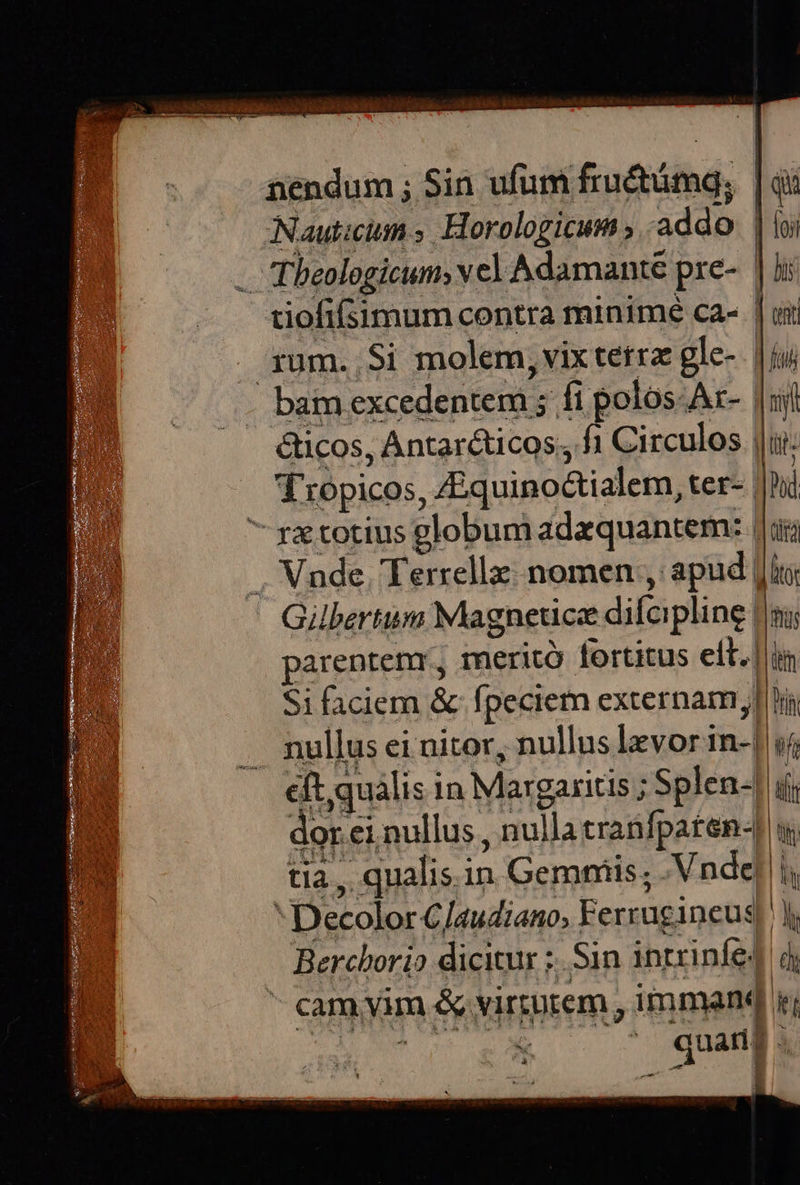 nendum ; Sin uſum fructúmq;
Nauticum, Horologicum, addo
Theologicum, vel Adamanté pre-
tioſiſsimum contra minimé ca-
rum. Si molem, vix terræ gle-
bam excedentem ; ſi polos Ar-
cticos, Antarcticos, ſi Circulos
Tropicos, Æquinoctialem, ter-
ræ totius globum adæquantem:
Vnde Terrellæ nomen, apud
Gilbertum Magneticæ diſcipline
parentem, meritò fortitus eſt.
Si faciem & ſpeciem externam,
nullus ei nitor, nullus lævor in-
eſt, qualis in Margaritis ; Splen-
dor ei nullus, nulla tranſparen-
tia, qualis in Gemmis; Vnde
Decolor Claudiano, Ferrugineus
Berchorio dicitur ; Sin intrinſe-
cam vim & virtutem, immane